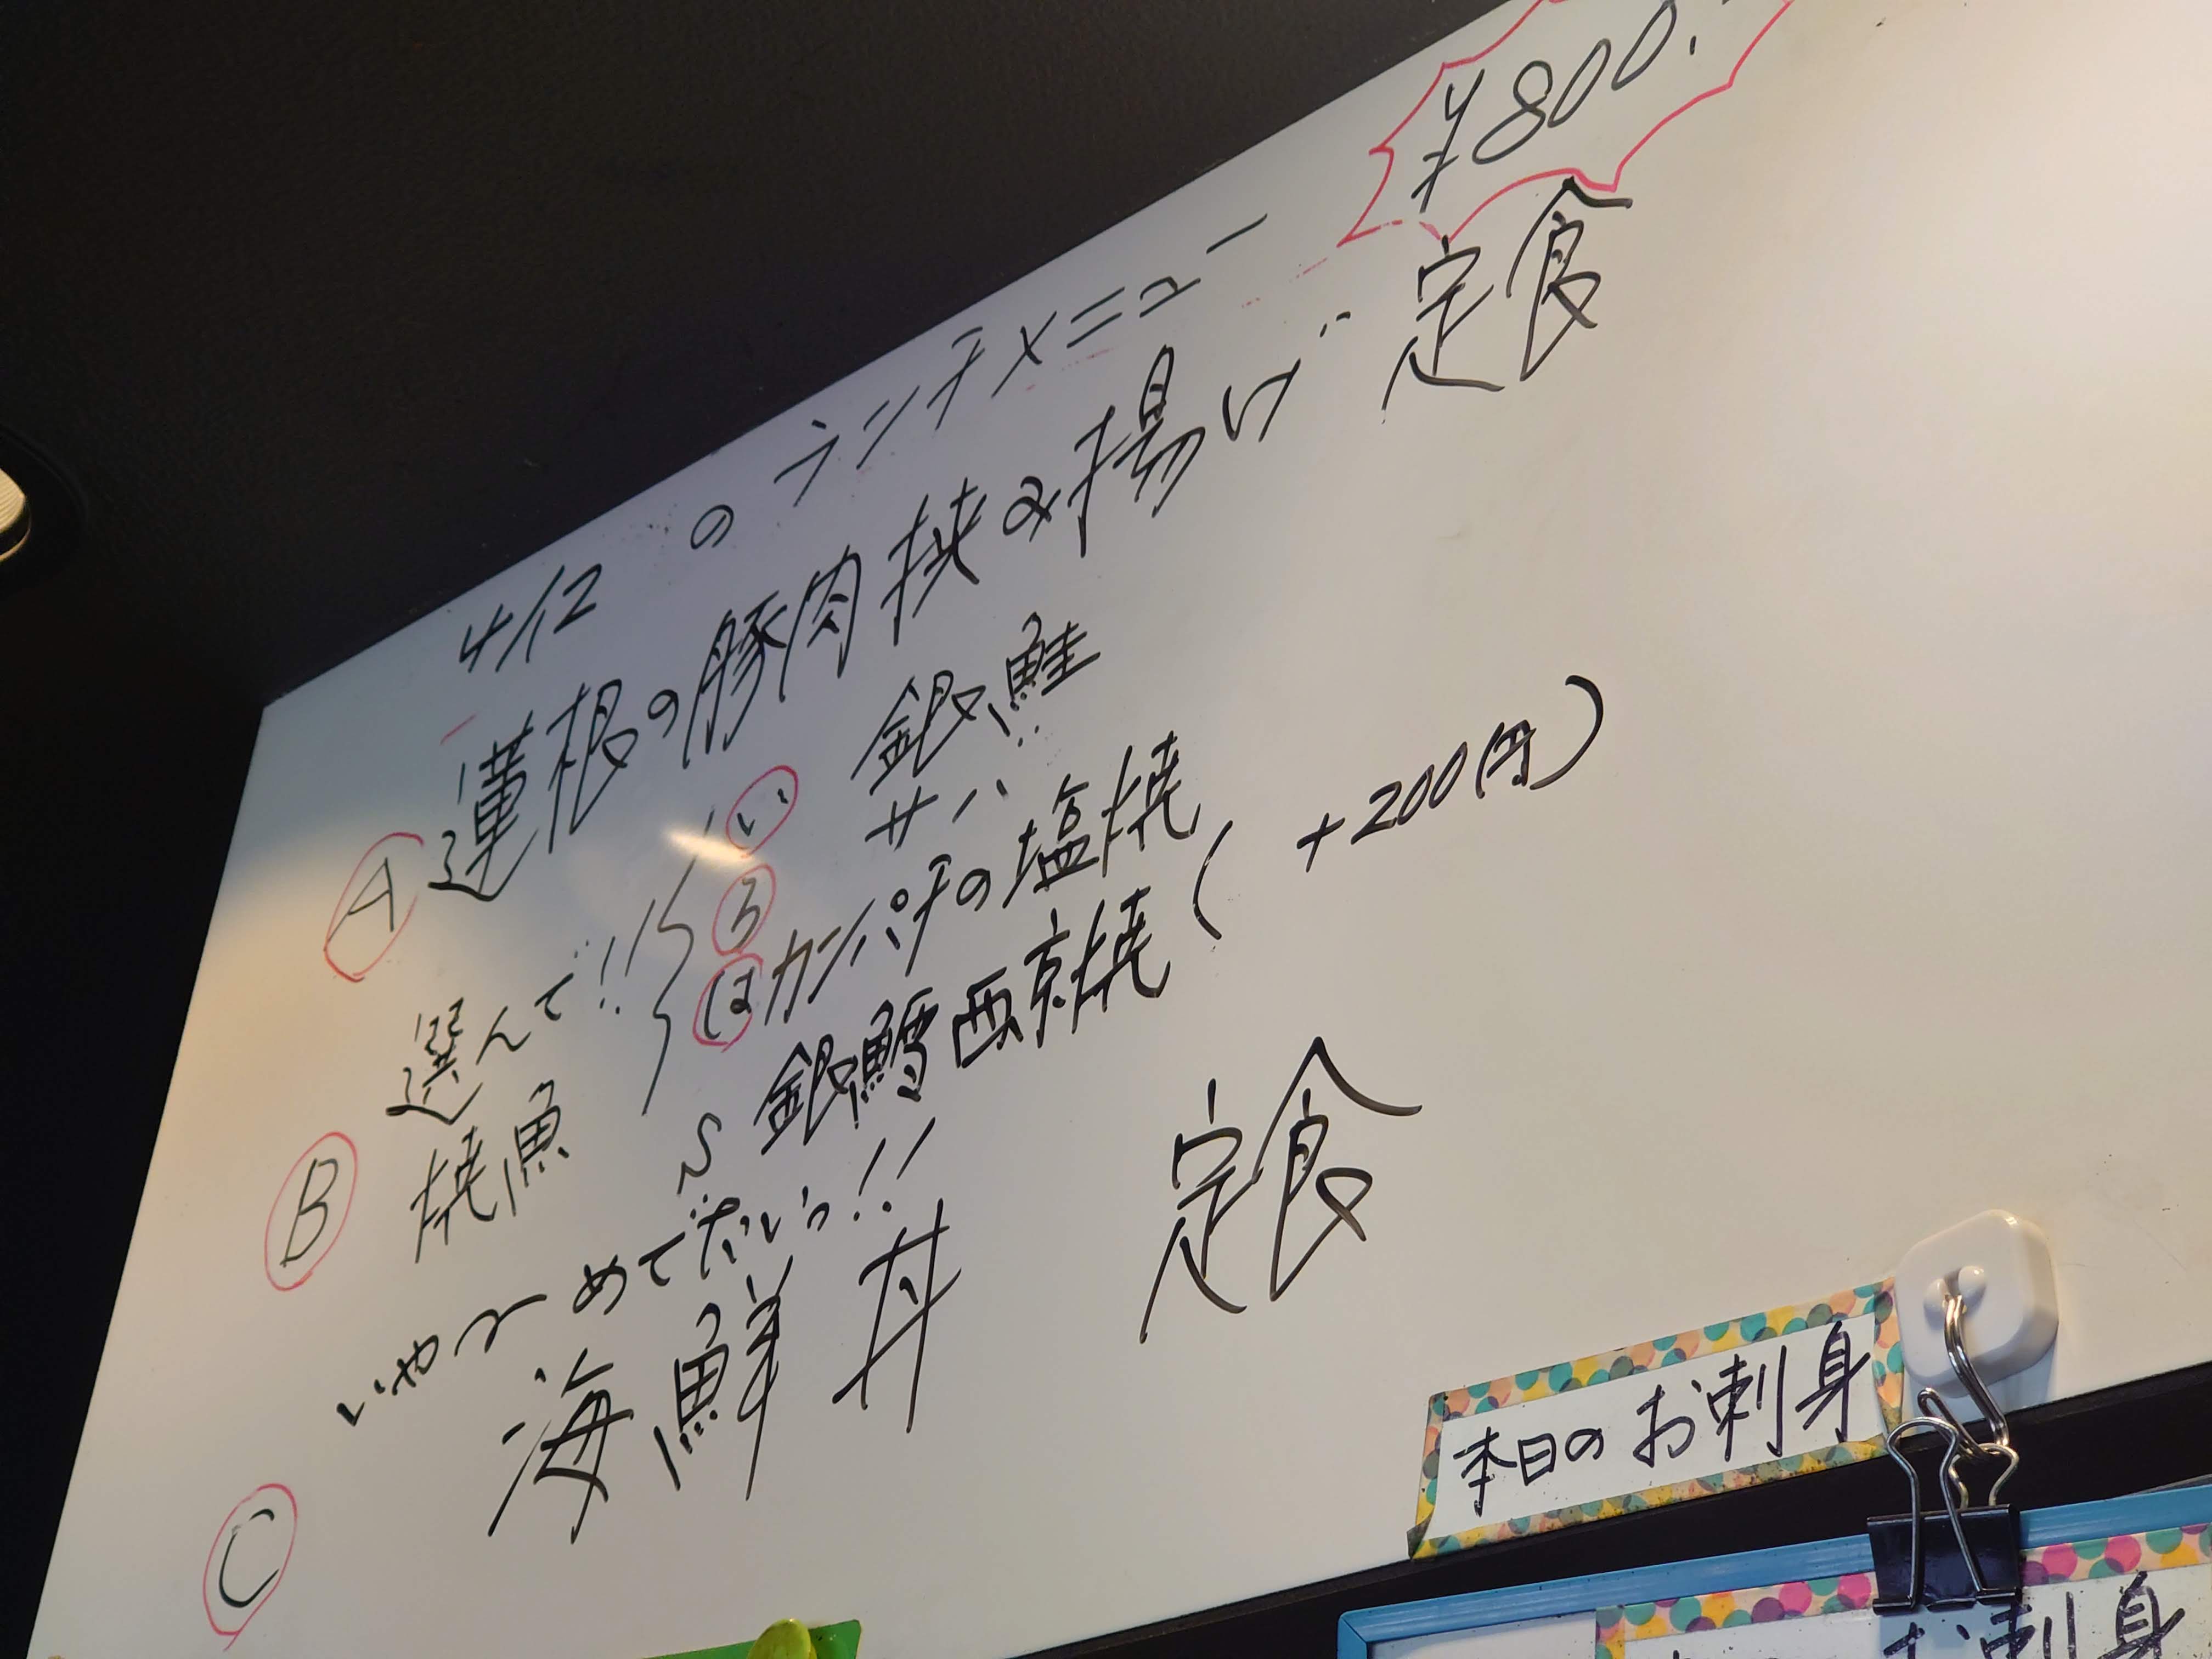 4/12 のランチメニュー ¥800.
Ⓐ 蓮根の豚肉挟み揚げ 定食
選んで!!
Ⓑ 焼魚
い 銀鮭
ろ サバ
は カンパチの塩焼
銀鱈西京焼 (+200円)
定食
いや〜めでたい!!
Ⓒ 海鮮丼
本日の お刺身
お刺身